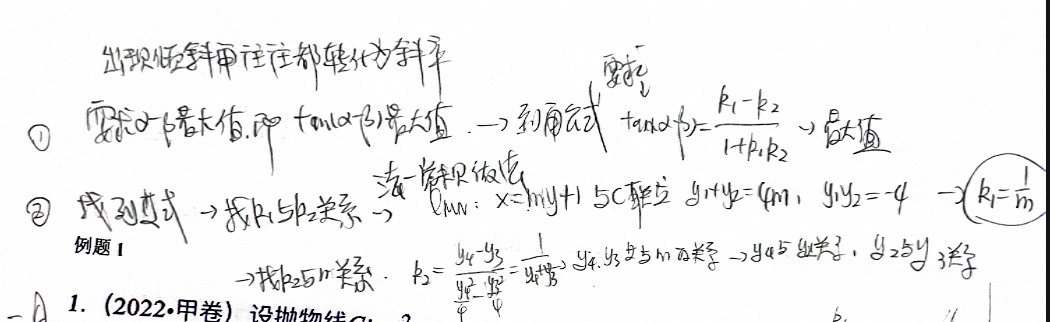 出现倾斜角往往都转化为斜率
要求
① 要求α-β最大值.即 tan(α-β)最大值. → 到角公式 tan(α-β)=\frac{k₁-k₂}{1+k₁k₂} → 最大值
法一 常规做法
② 找到变式 → 找k₁与k₂关系 → l_{MN}: x=my+1 与C联立 y₁+y₂=4m, y₁y₂=-4 → k₁=\frac{1}{m}
例题 1
→ 找k₂与m关系. k₂=\frac{y₄-y₃}{\frac{y₄²}{4}-\frac{y₃²}{4}} → y₄.y₃与m的关系 → y₂与y₃关系
1. (2022•甲卷) 设抛物线C: